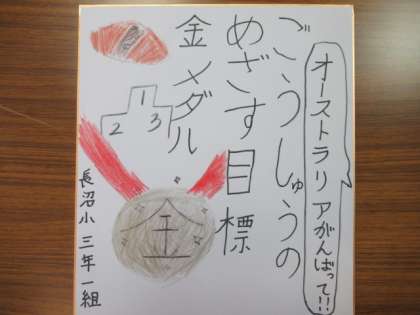 オーストラリアがんばって!!
ごうしゅうの
めざす目標
金メダル
1
2
3
金
長沼小三年一組